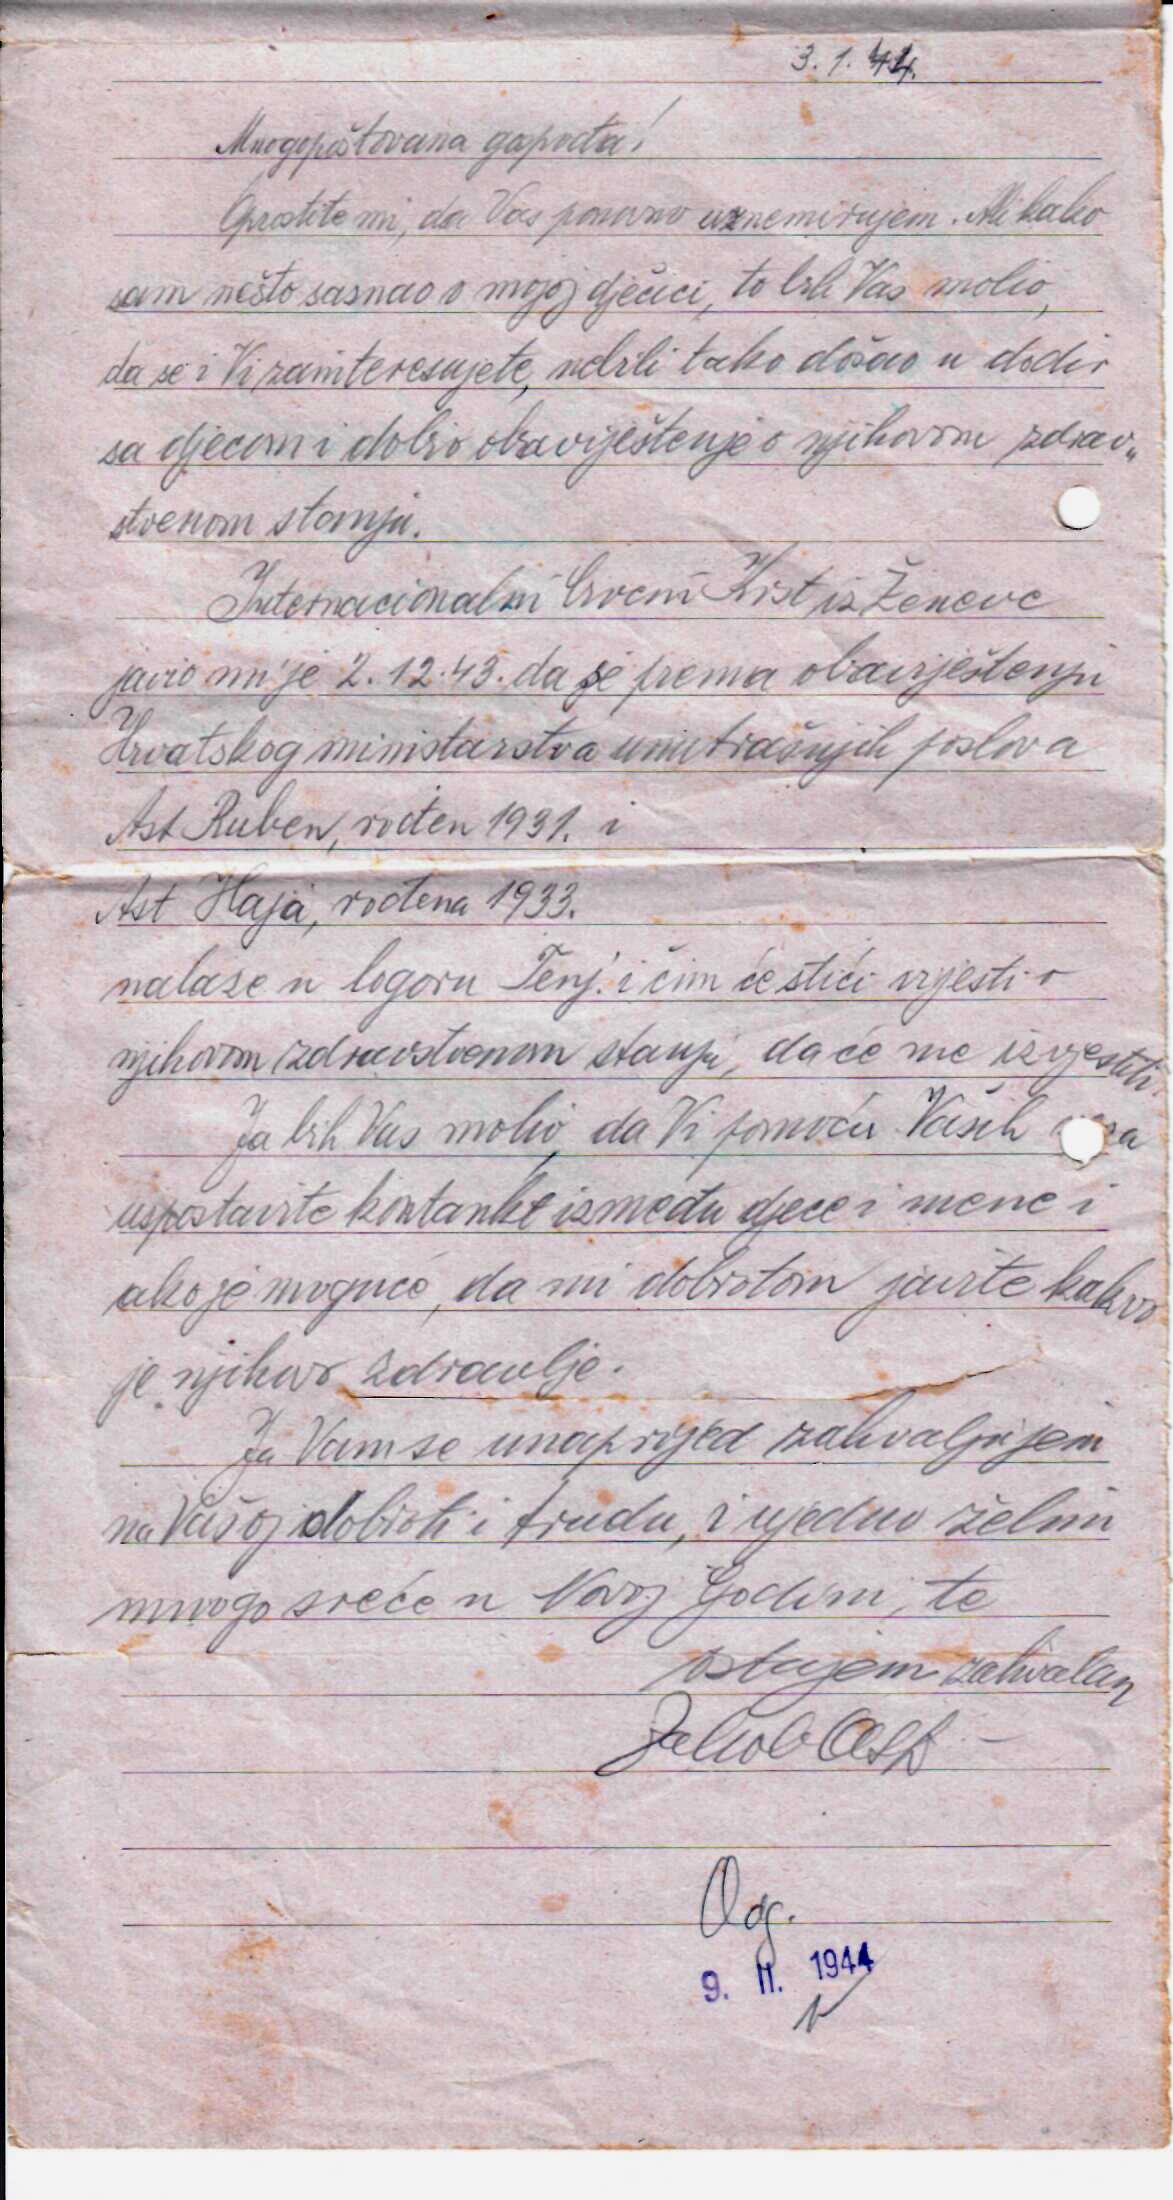 3. 1. 44.
Mnogopoštovana gospođa!
Oprostite mi, da Vas ponovno uznemirujem. Ali kako
sam nešto saznao o mojoj dječici, to bih Vas molio,
da se i Vi zainteresujete, nebi li tako došao u dodir
sa djecom i dobio obaviještenje o njihovom zdrav„
stvenom stanju.
Internacionalni Crveni Krst iz Ženeve
javio mi je 2. 12. 43. da se prema obavještenju
Hrvatskog ministarstva unutrašnjih poslova
Ast Ruben, rođen 1931. i
Ast Haja, rođena 1933.
nalaze u logoru Tenj. i čim će stići vijesti o
njihovom zdravstvenom stanju, da će me izvjestiti.
Ja bih Vas molio, da Vi pomoću Vaših
uspostavite kontankt između djece i mene i
ako je moguće, da mi dobrotom javite kakvo
je njihovo zdravlje.
Ja Vam se unaprijed zahvaljujem
na Vašoj dobroti i trudu, i ujedno želim
mnogo sreće u Novoj Godini, te
ostajem zahvalan
Jakob Ast
Odg.
9. II. 1944